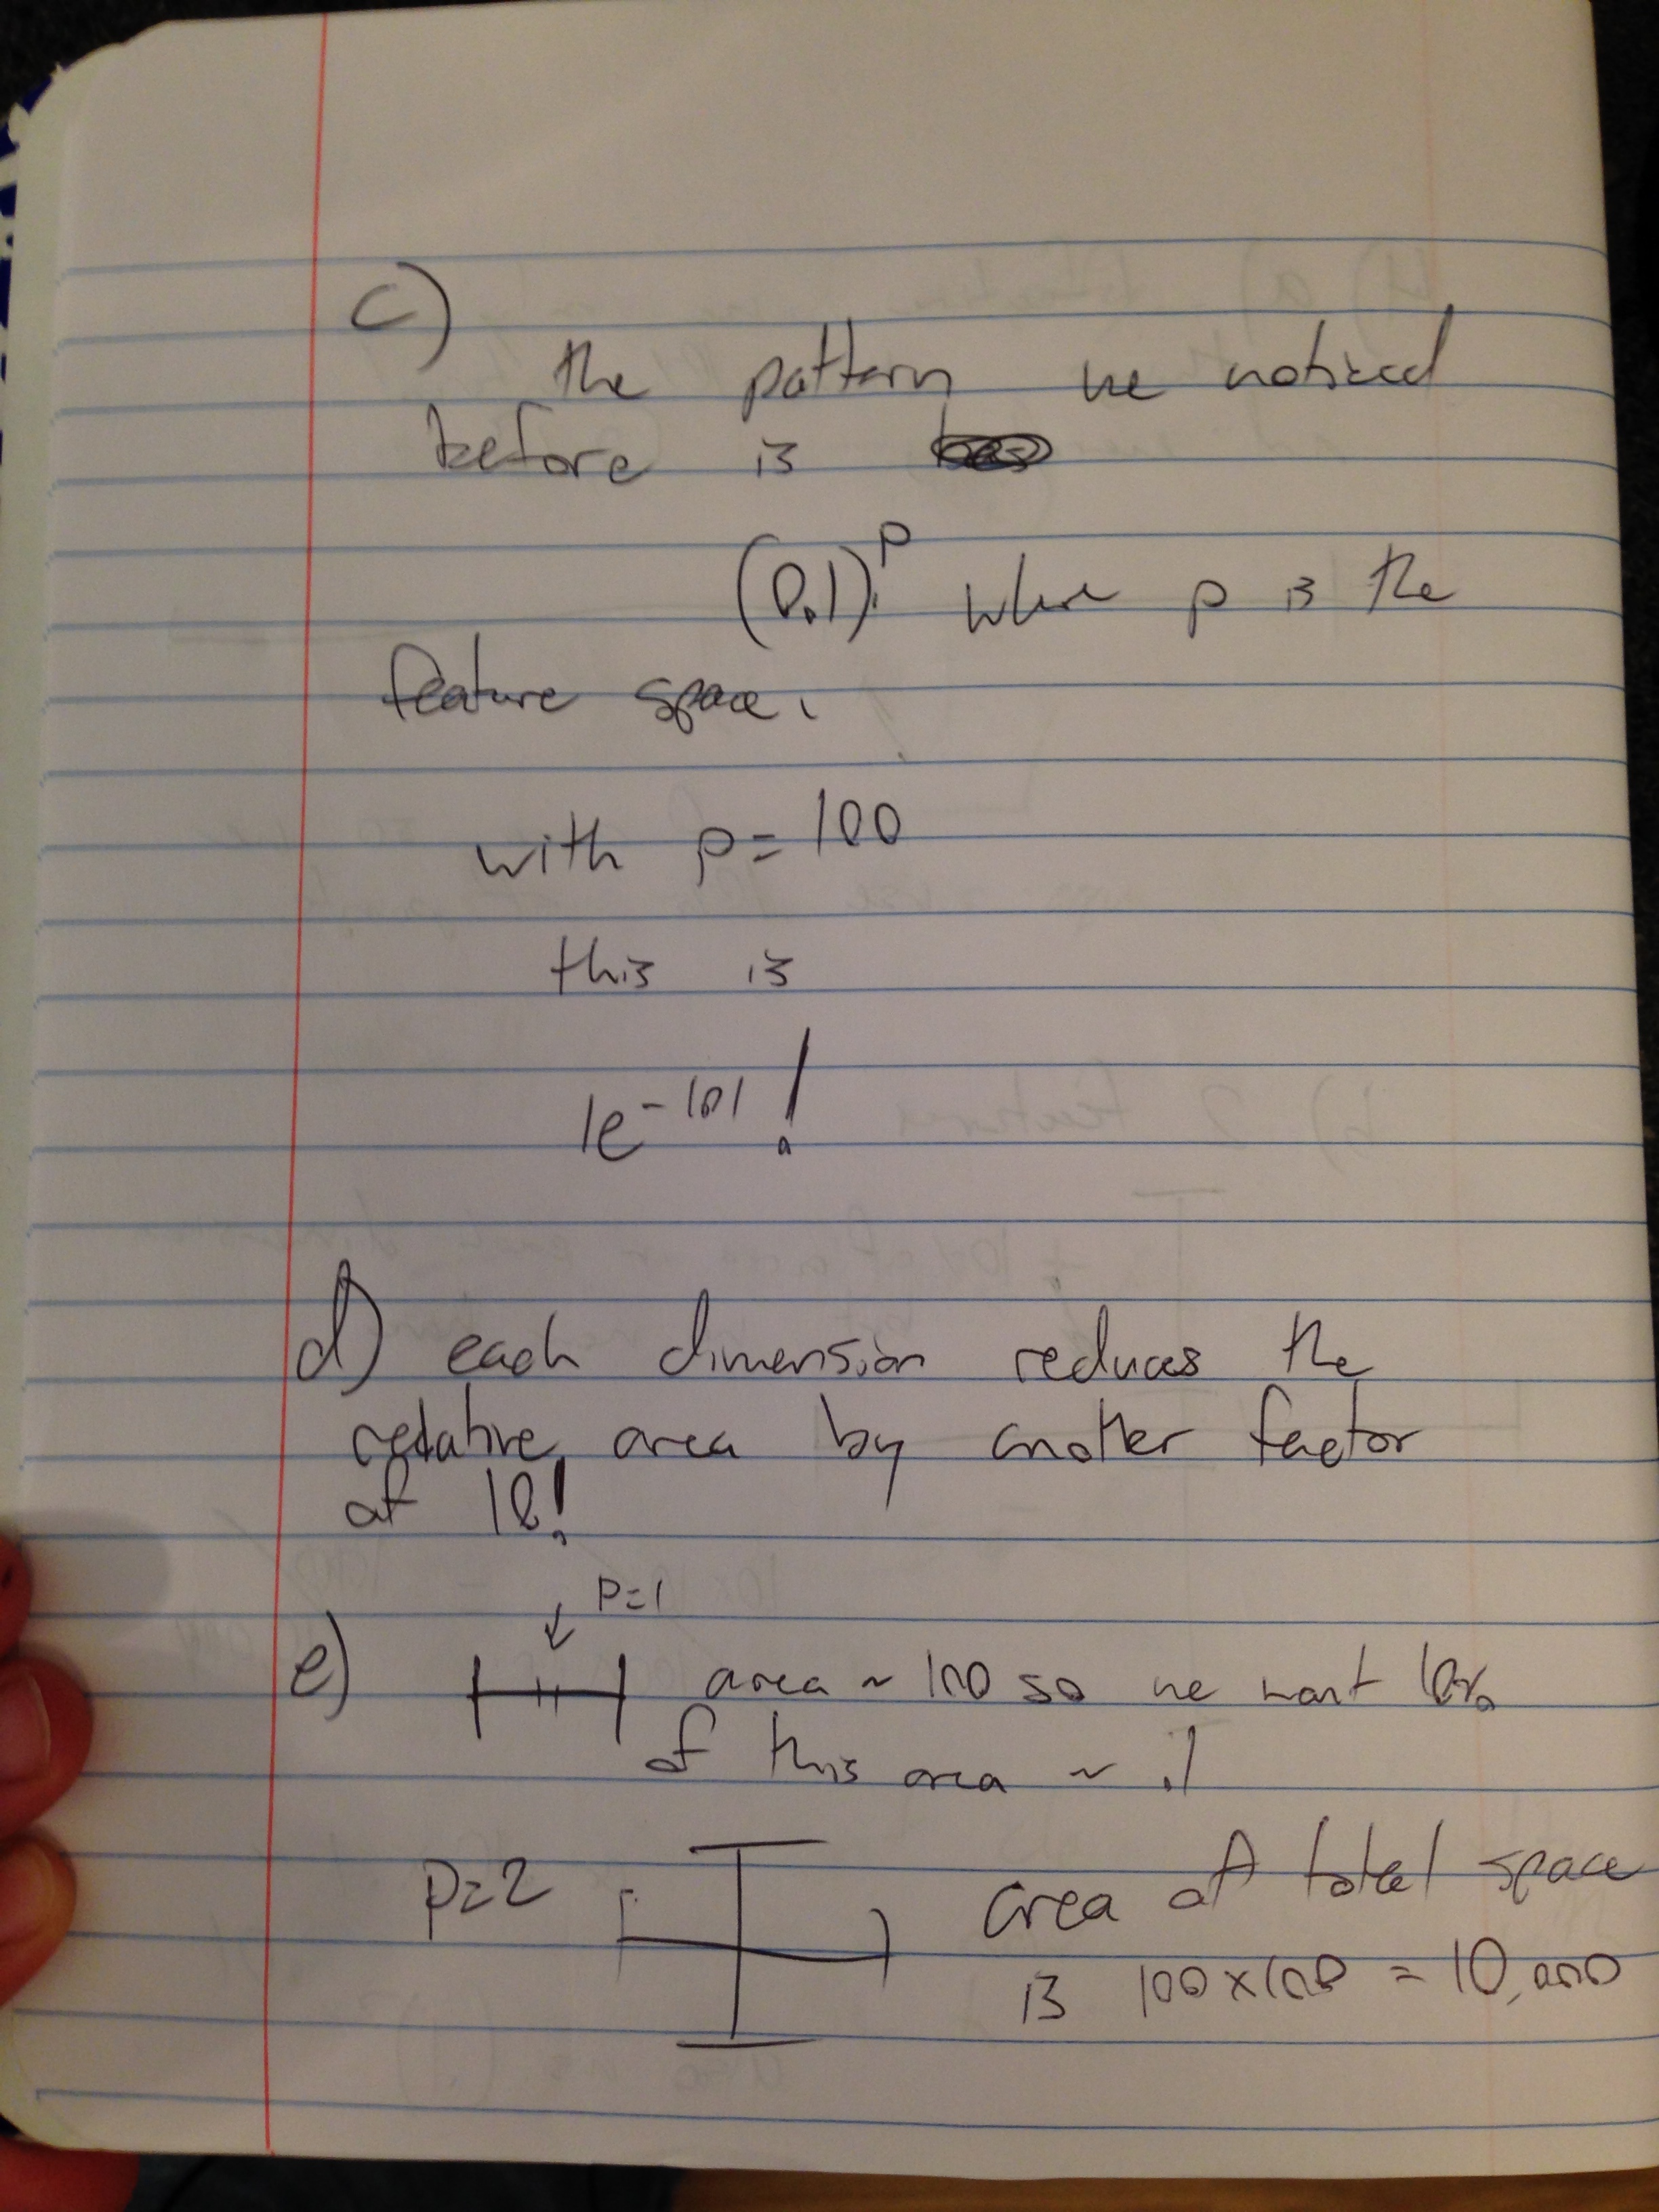 c)
the pattern we noticed
before is
(0.1)^p where p is the
feature space.
with p = 100
this is
1e^-101 !
d) each dimension reduces the
relative area by another factor
of 10!
p=1
e) area ~ 100 so we want 10%
of this area ~ .1
p=2 area of total space
is 100 x 100 = 10,000